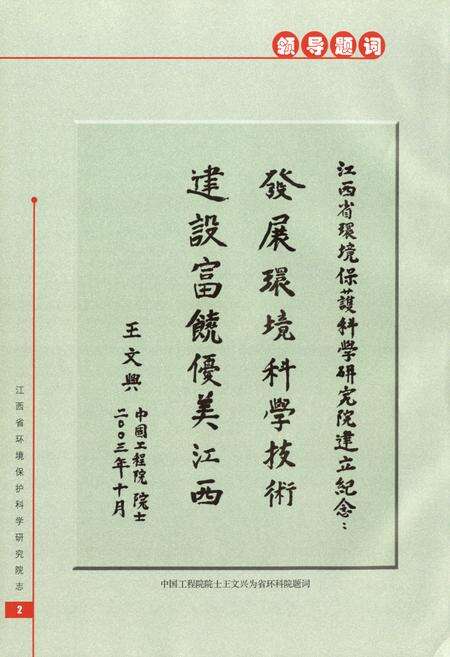 领导题词
江西省環境保護科學研究院建立紀念：
發展環境科學技術
建設富饒優美江西
王文興
中國工程院院士
二〇〇三年十月
中国工程院院士王文兴为省环科院题词
江西省环境保护科学研究院志
2